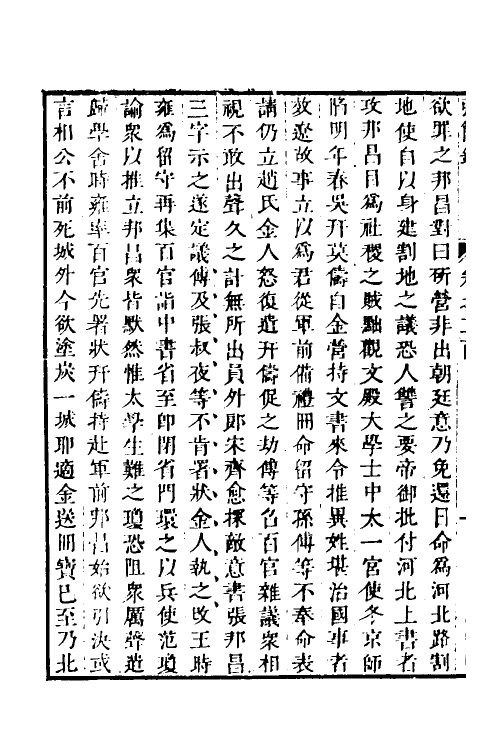 欲罪之邦昌對曰斫營非出朝廷意乃免還日命爲河北路割
地使自以身建割地之議恐人讐之要帝御批付河北上書者
攻邦昌目爲社稷之賊黜觀文殿大學士中太一宮使冬京師
陷明年春吳幵莫儔自金營持文書來令推異姓堪治國事者
效遼故事立以爲君從軍前備禮冊命留守孫傅等不奉命表
請仍立趙氏金人怒復遣幵儔促之劫傅等召百官雜議衆相
視不敢出聲久之計無所出員外郎宋齊愈探敵意書張邦昌
三字示之遂定議傅及張叔夜等不肯署狀金人執之改王時
雍爲留守再集百官詣中書省至即閉省門環之以兵使范瓊
諭衆以推立邦昌衆皆默然惟太學生難之瓊恐阻衆厲聲遣
歸學舍時雍率百官先署狀幵儔持赴軍前邦昌始欲引決或
言相公不前死城外今欲塗炭一城耶適金送冊寶已至乃北